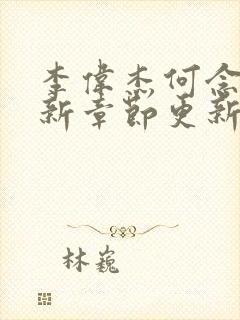 李偉杰何念
新章節更新
林巍